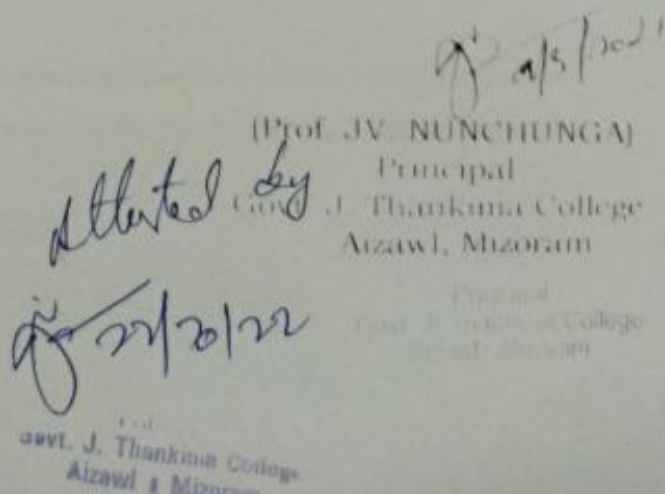 (Prof. JV. NUNCHUNGA)
Principal
Govt. J. Thankima College
Aizawl, Mizoram
Attested by
Principal
Govt. J. Thankima College
Govt. J. Thankima College
Aizawl : Mizoram